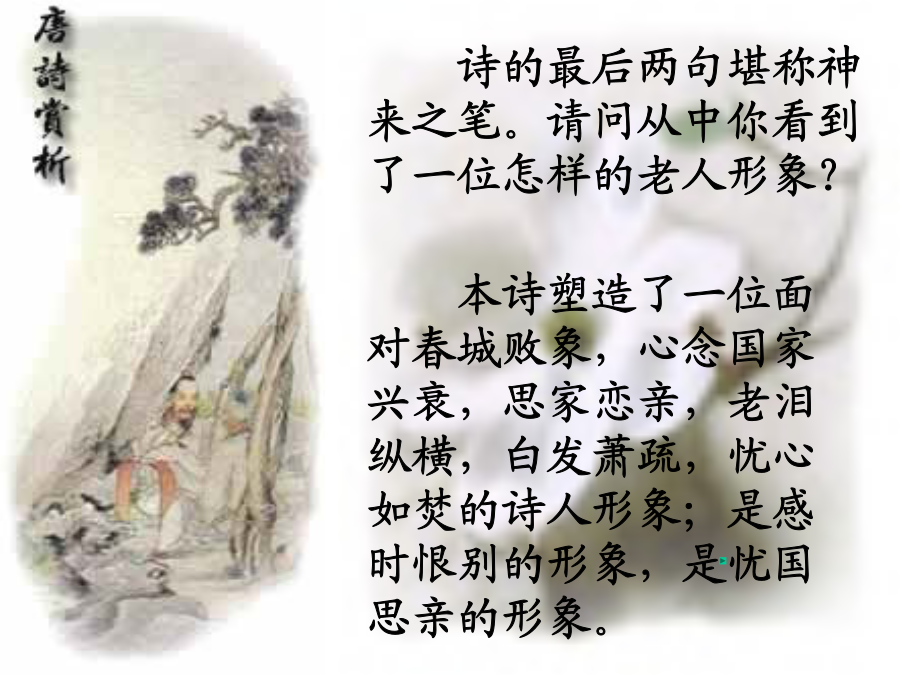 唐詩賞析
诗的最后两句堪称神
来之笔。请问从中你看到
了一位怎样的老人形象？
本诗塑造了一位面
对春城败象，心念国家
兴衰，思家恋亲，老泪
纵横，白发萧疏，忧心
如焚的诗人形象；是感
时恨别的形象，是忧国
思亲的形象。